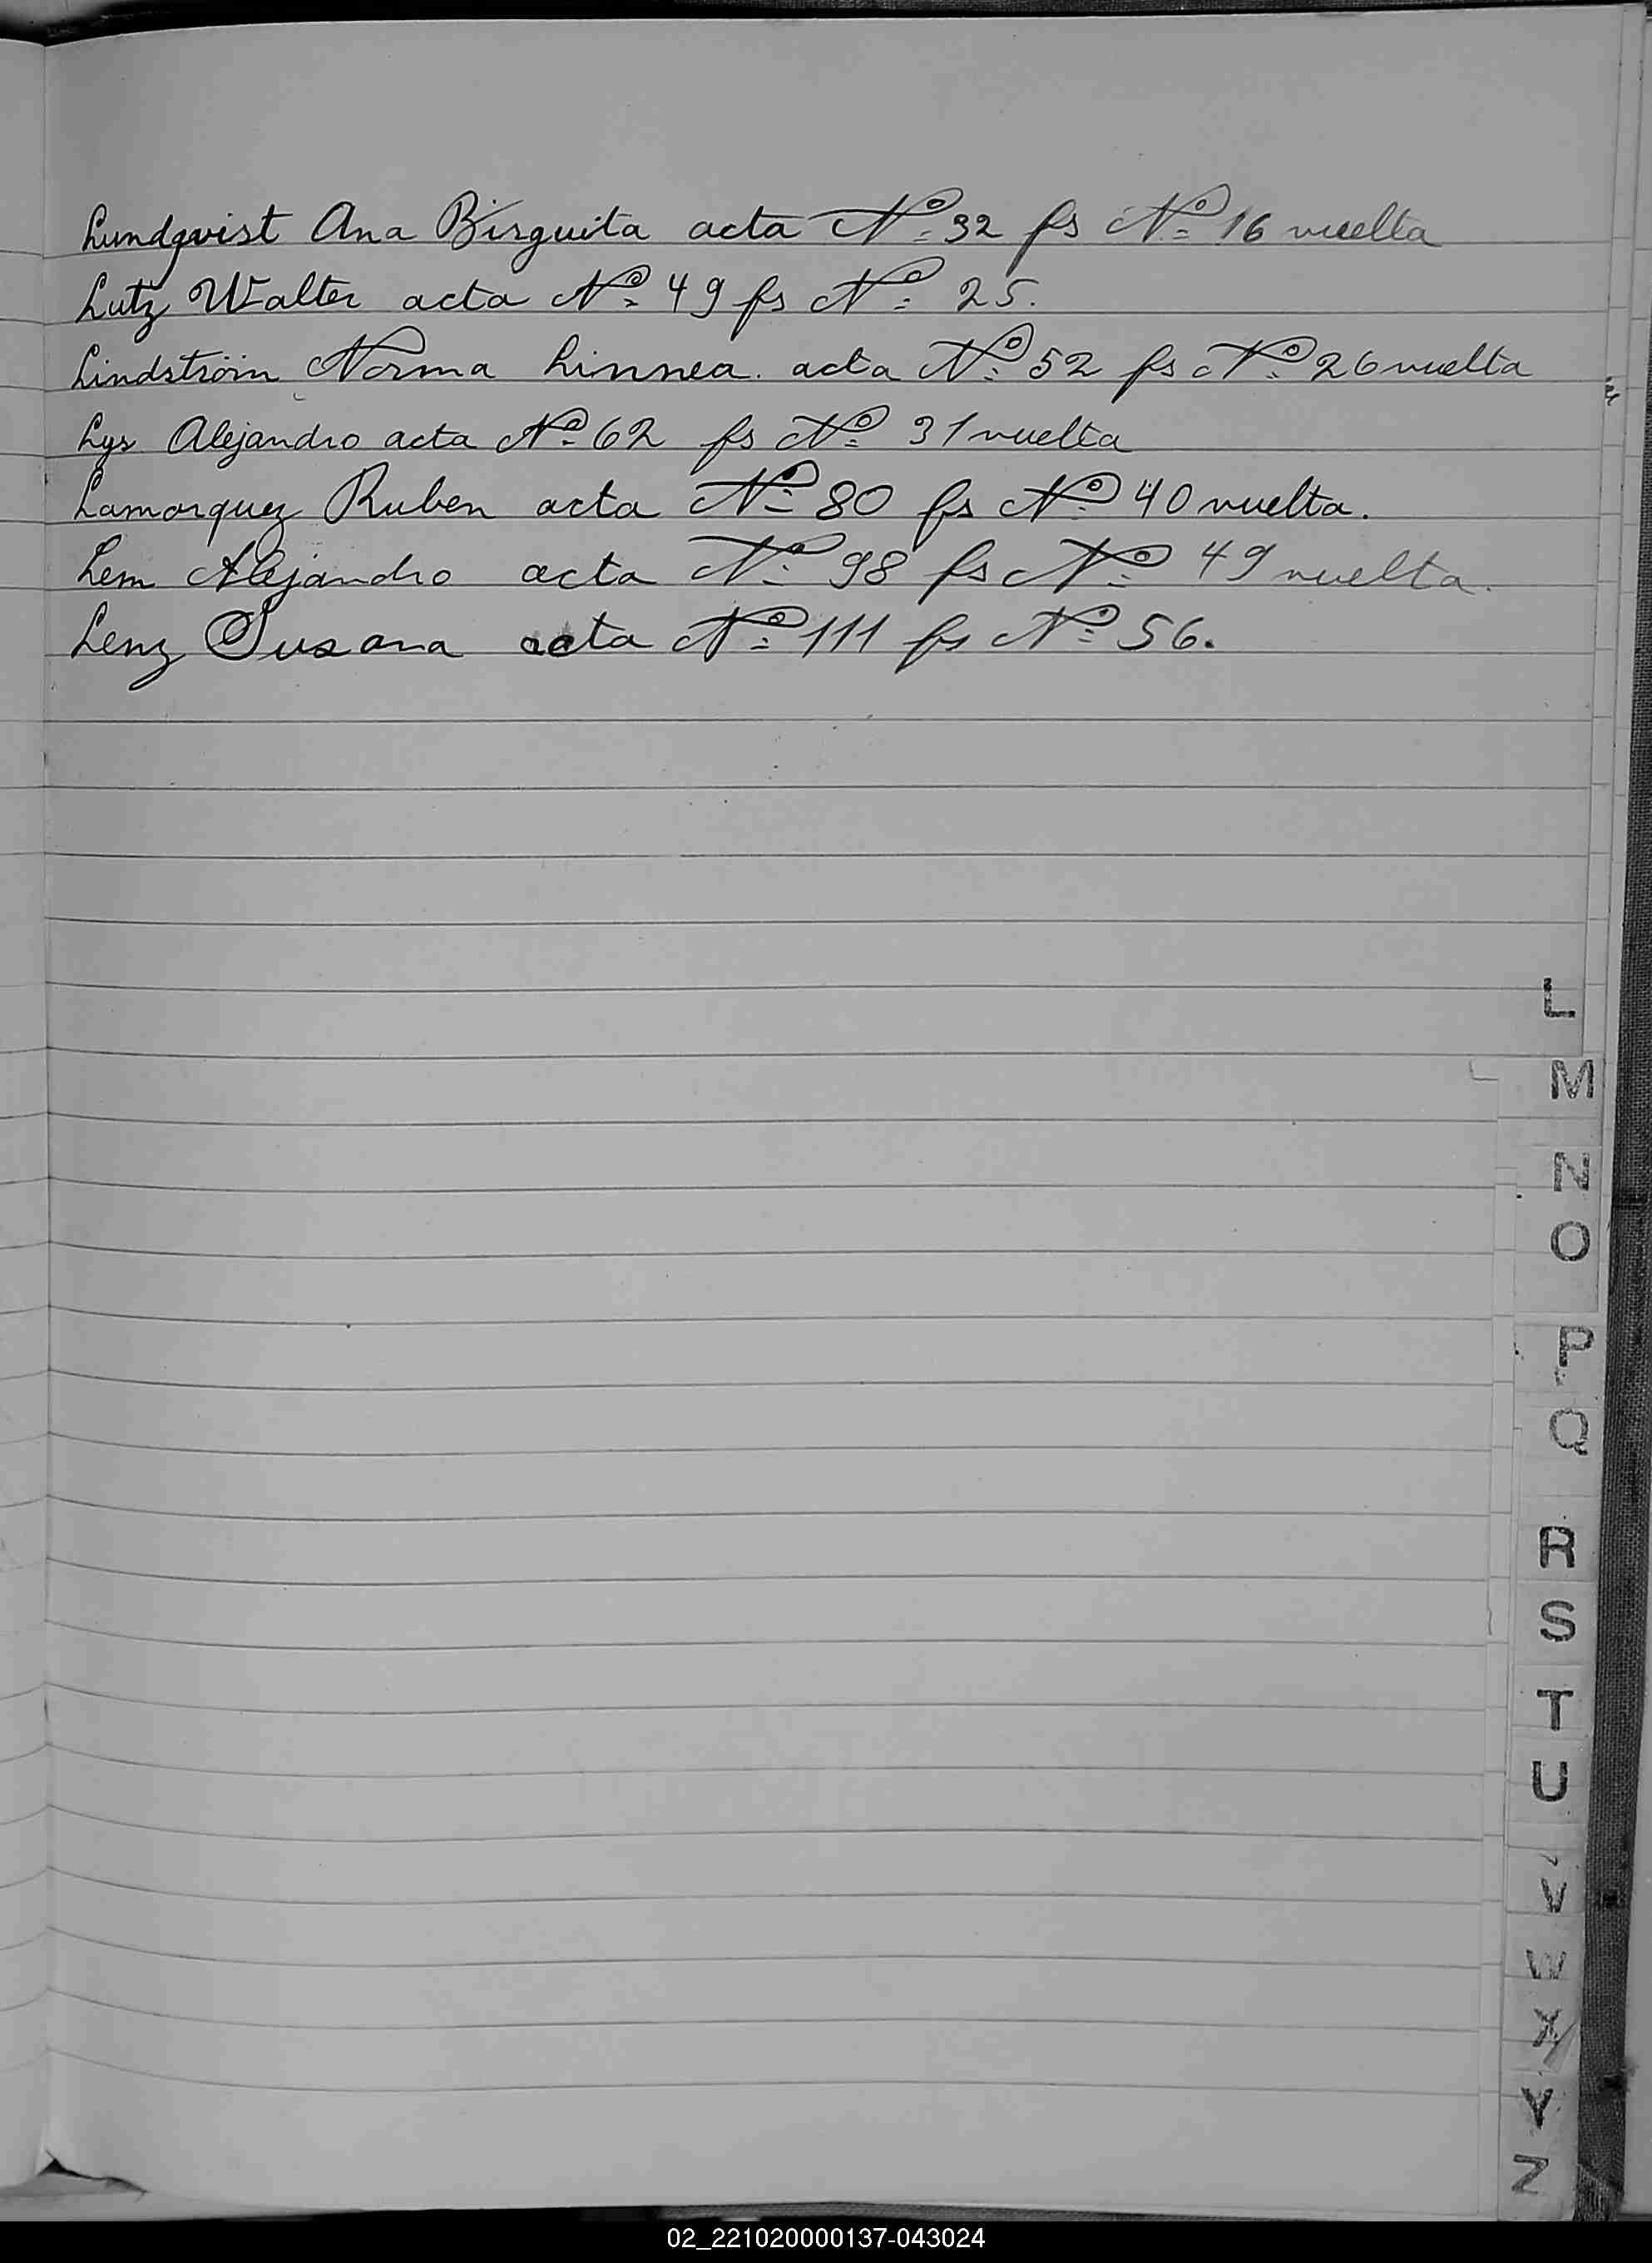 Lundqvist Ana Birguita acta Nº 32 fs Nº 16 vuelta
Lutz Walter acta Nº 49 fs Nº 25.
Lindström Norma Linnea. acta Nº 52 fs Nº 26 vuelta
Lys Alejandro acta Nº 62 fs Nº 31 vuelta
Lamarquez Ruben acta Nº 80 fs Nº 40 vuelta.
Lem Alejandro acta Nº 98 fs Nº 49 vuelta.
Lenz Susana acta Nº 111 fs Nº 56.
L
M
N
O
P
Q
R
S
T
U
V
W
X
Y
Z
02_221020000137-043024